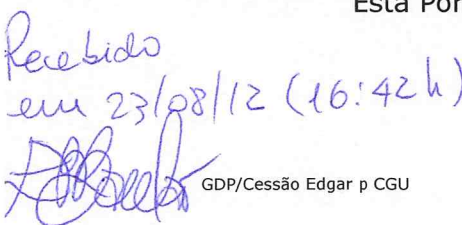 Esta Por
Recebido
em 23/08/12 (16:42 h)
GDP/Cessão Edgar p CGU